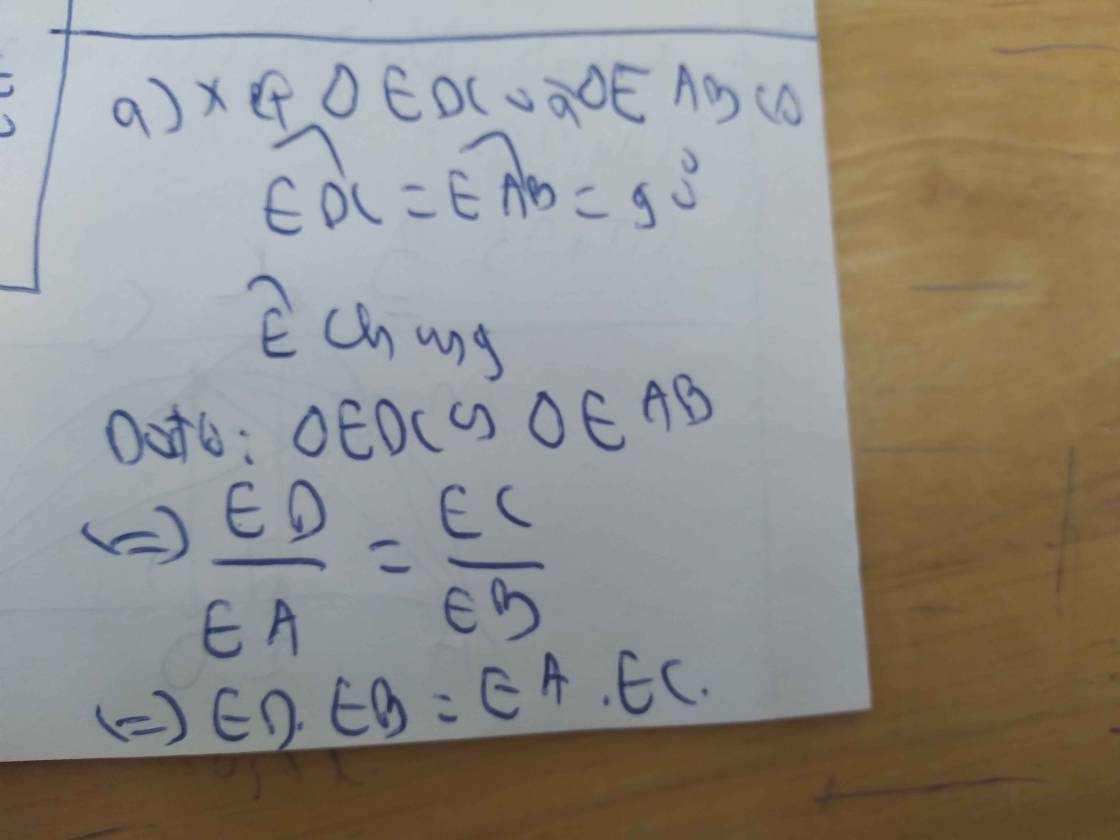 a) Xét Δ EDC và Δ EAB có
EDC = EAB = 90°
E chung
Do đó: Δ EDC ∽ Δ EAB
(=) ED/EA = EC/EB
(=) ED.EB = EA.EC.